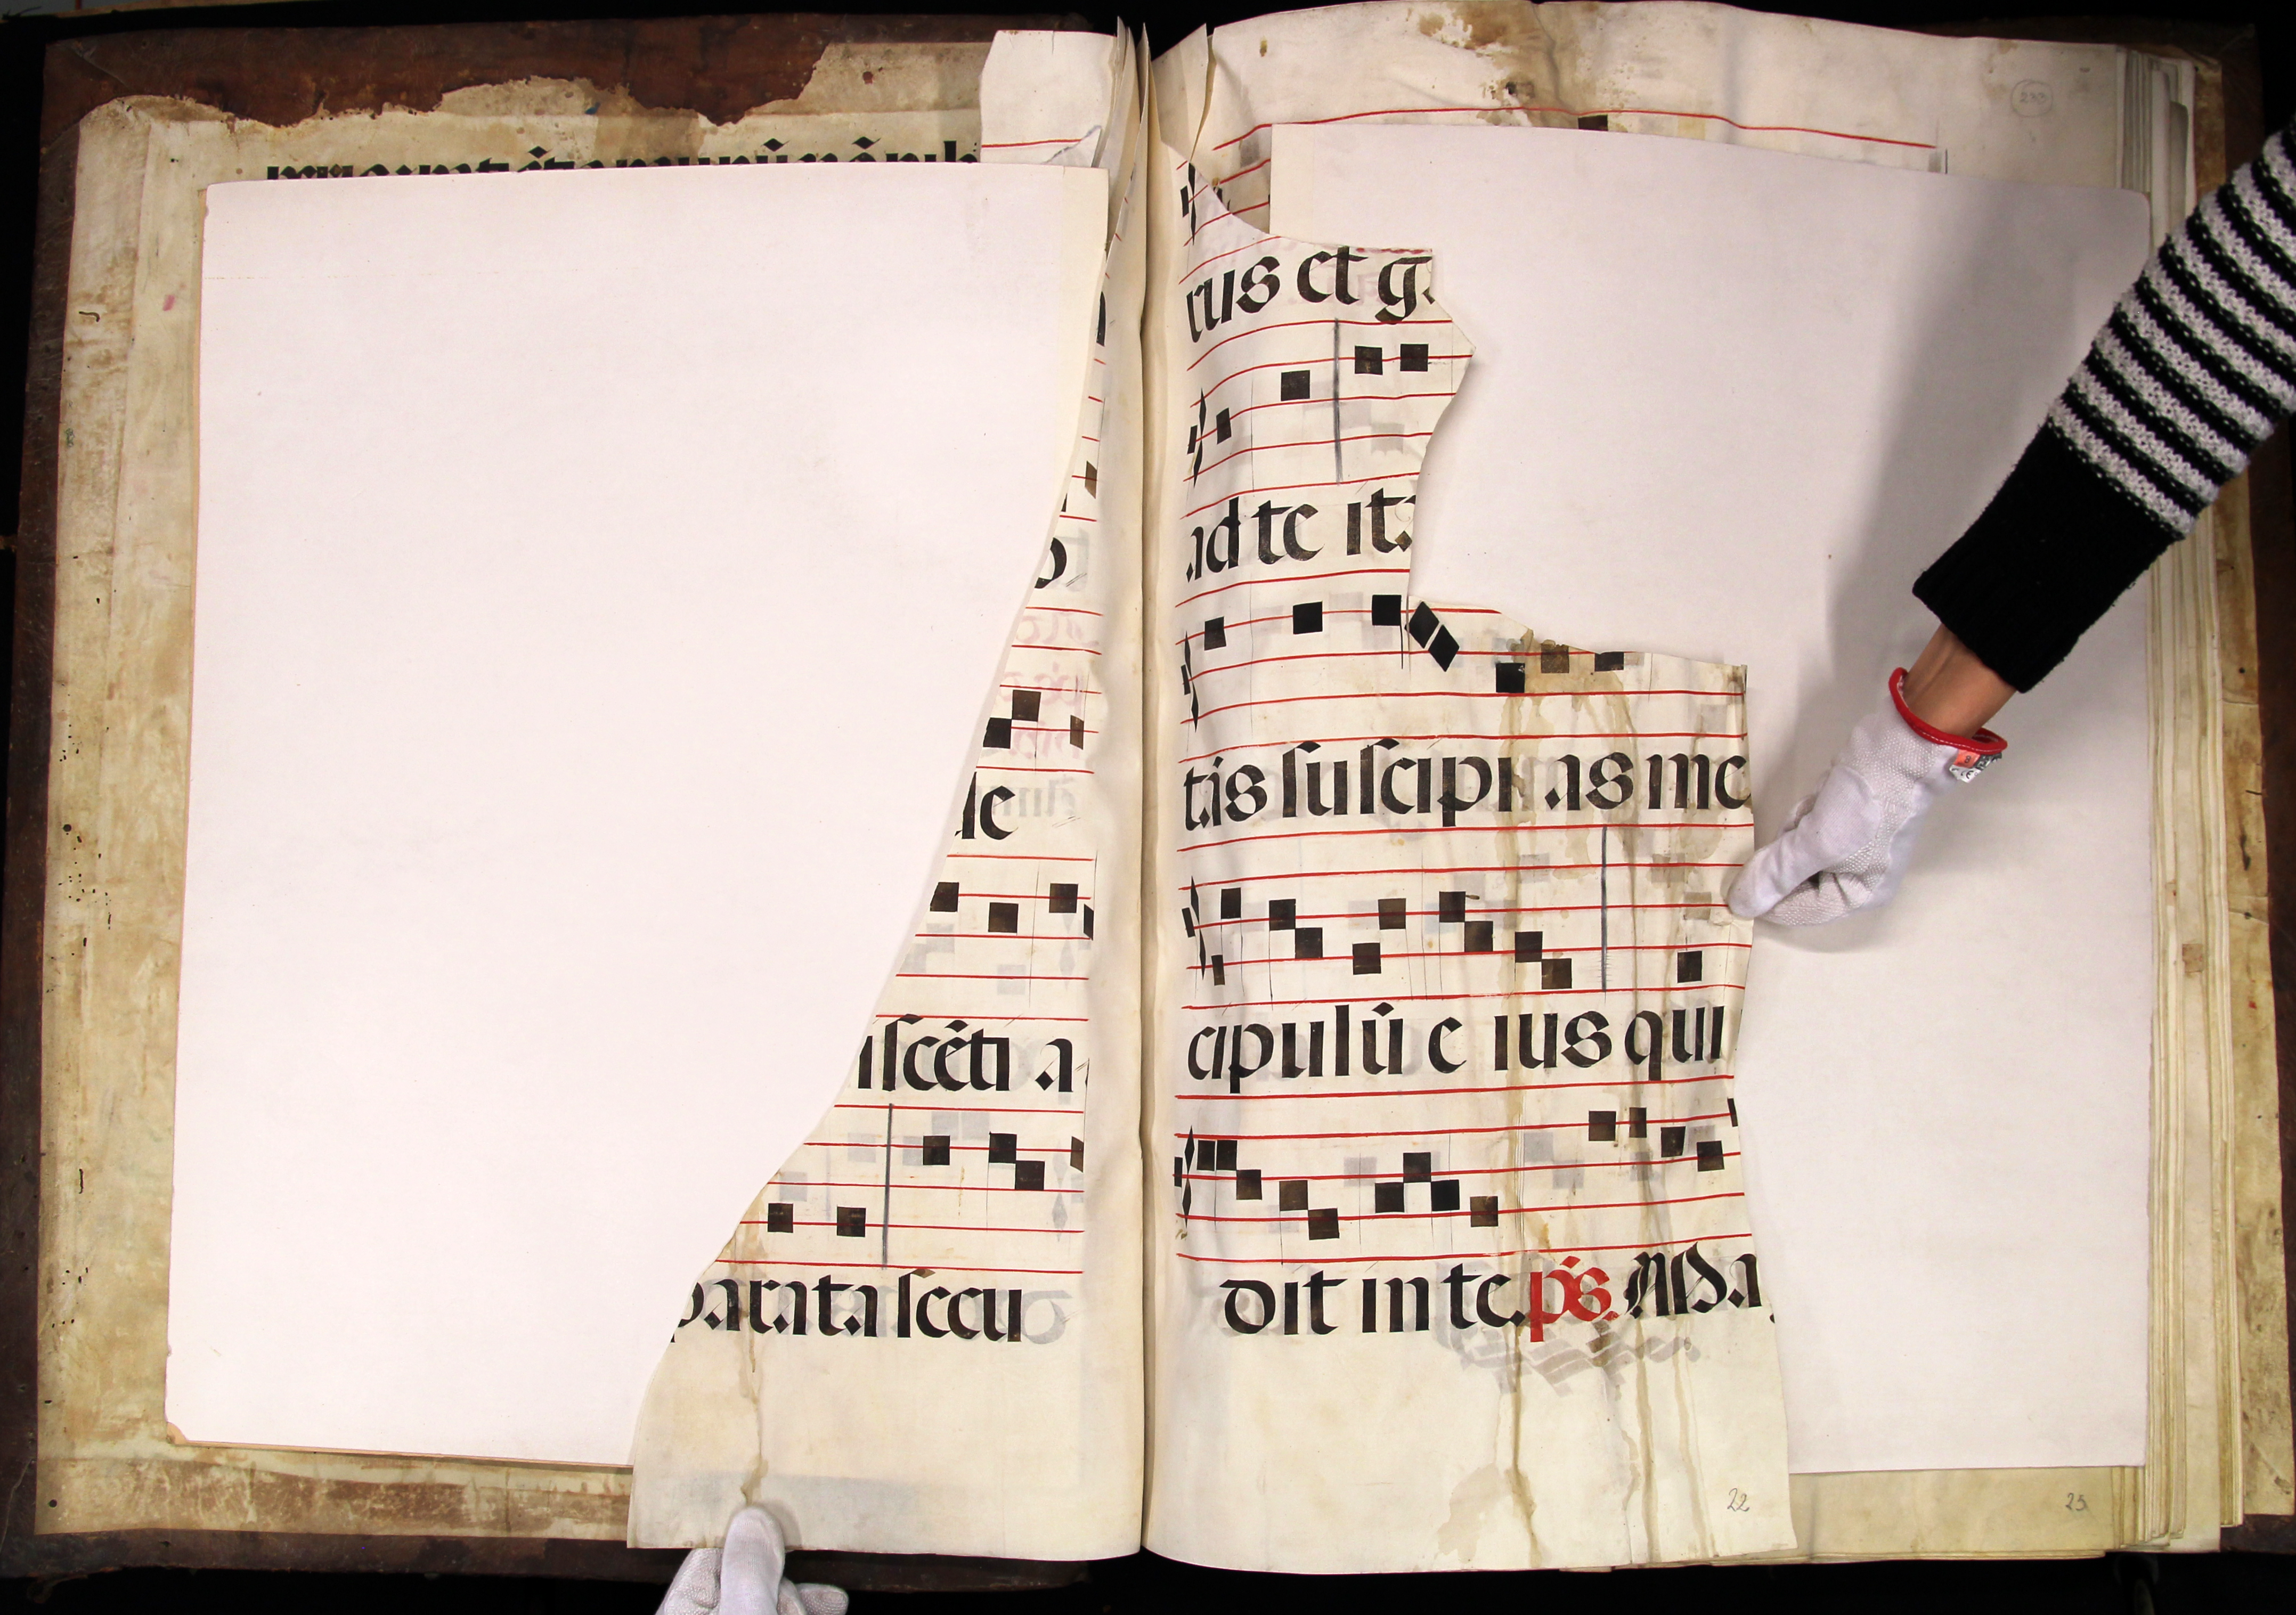 le
isceti a
parata secu
rus et g
ad te it
tis suscipi as me
cipulū e ius qui
dit in te. ps. Ma
22
25
233